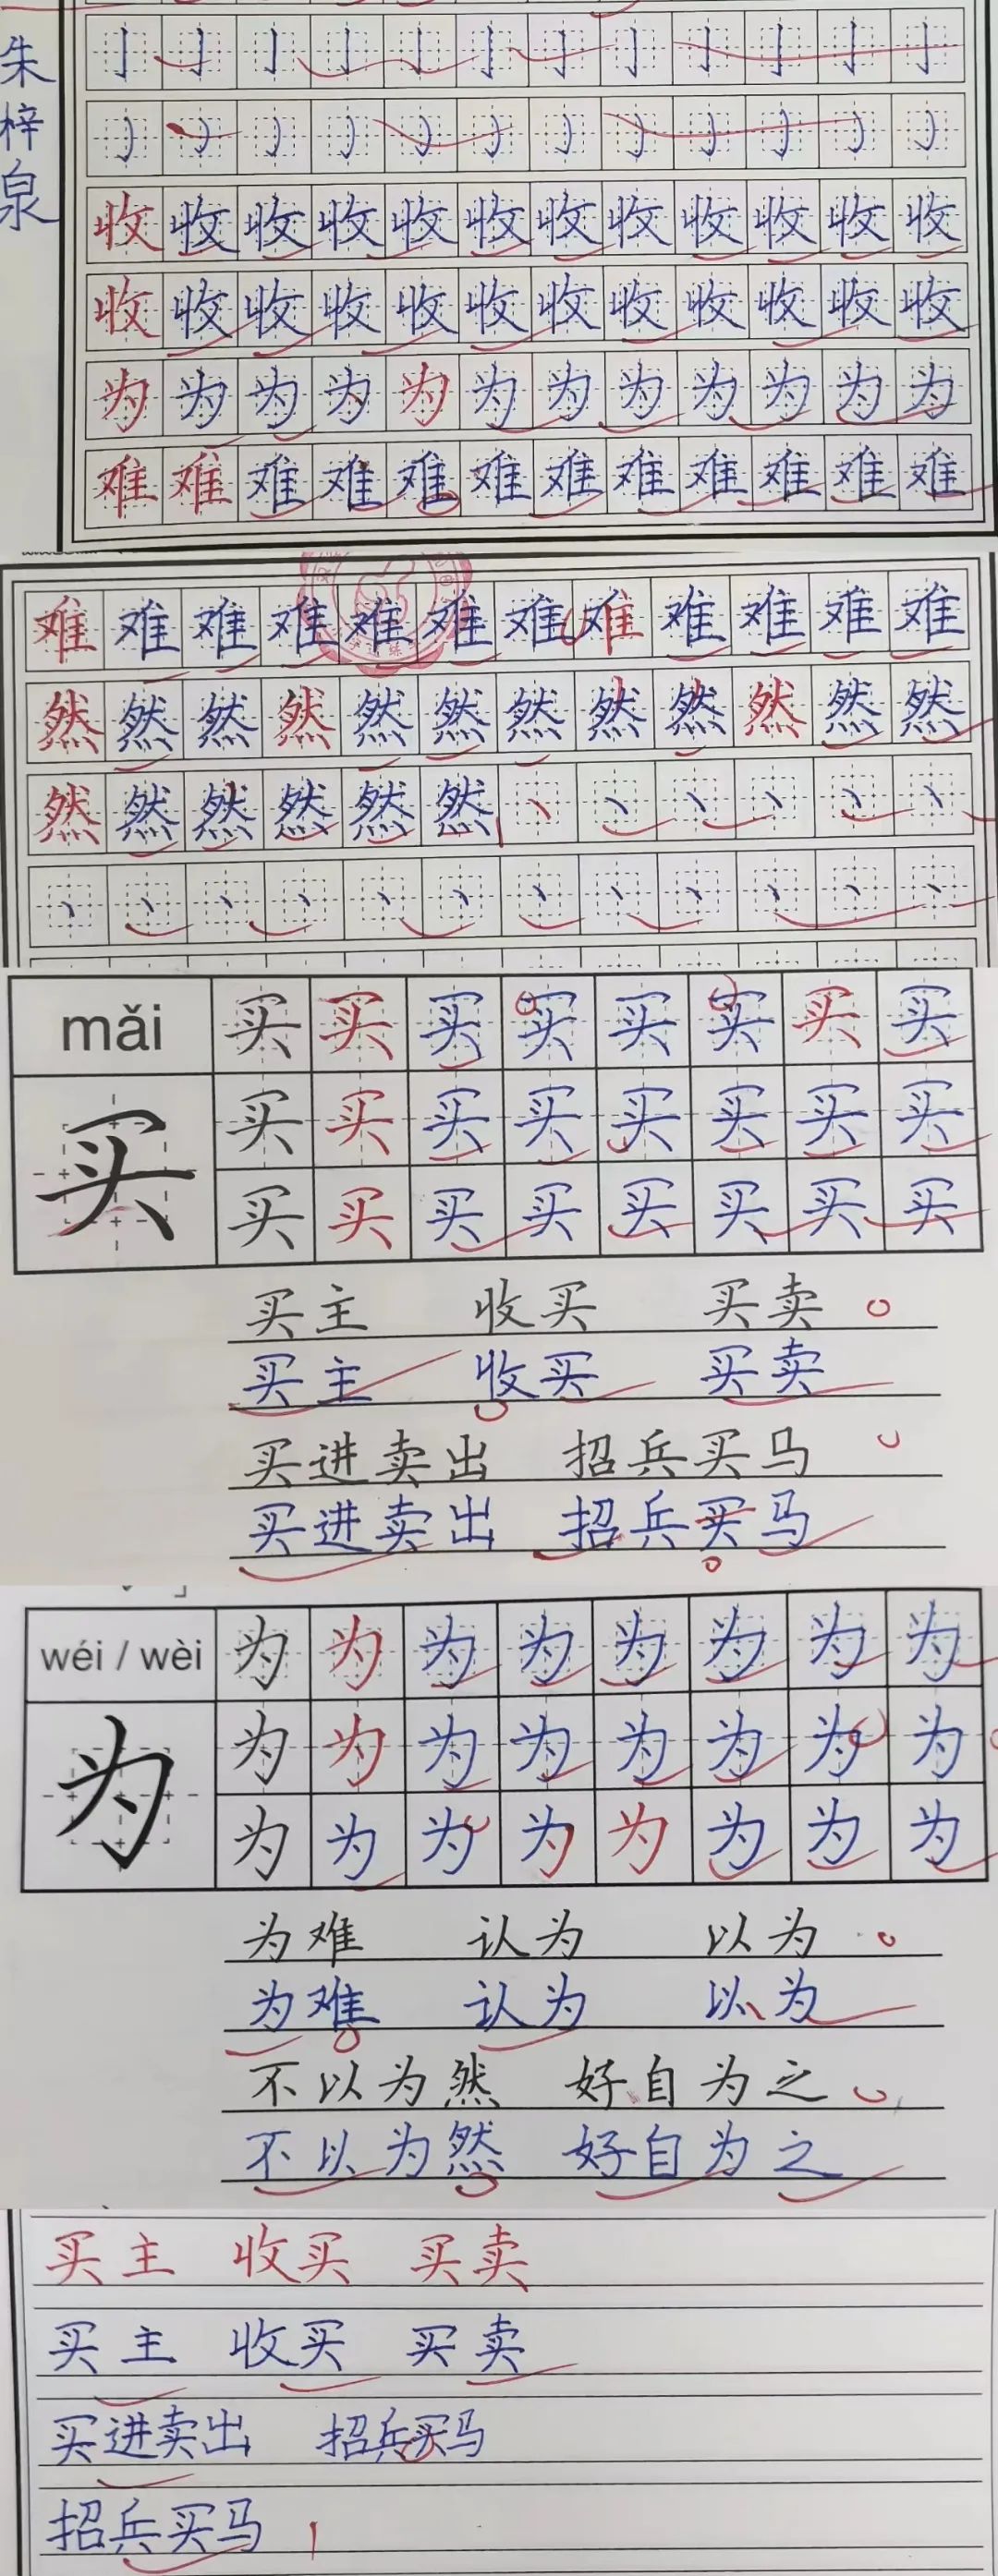 朱梓泉
收收收收收收收收收收收收
收收收收收收收收收收收收
为为为为为为为为为为为为
难难难难难难难难难难难难
难难难难难难难难难难难难
然然然然然然然然然然然然
然然然然然然
mǎi 买买买买买买买买
买 买买买买买买买买
买买买买买买买买
买主 收买 买卖
买主 收买 买卖
买进卖出 招兵买马
买进卖出 招兵买马
wéi / wèi 为为为为为为为为
为 为为为为为为为为
为为为为为为为为
为难 认为 以为
为难 认为 以为
不以为然 好自为之
不以为然 好自为之
买主 收买 买卖
买主 收买 买卖
买进卖出 招兵买马
招兵买马